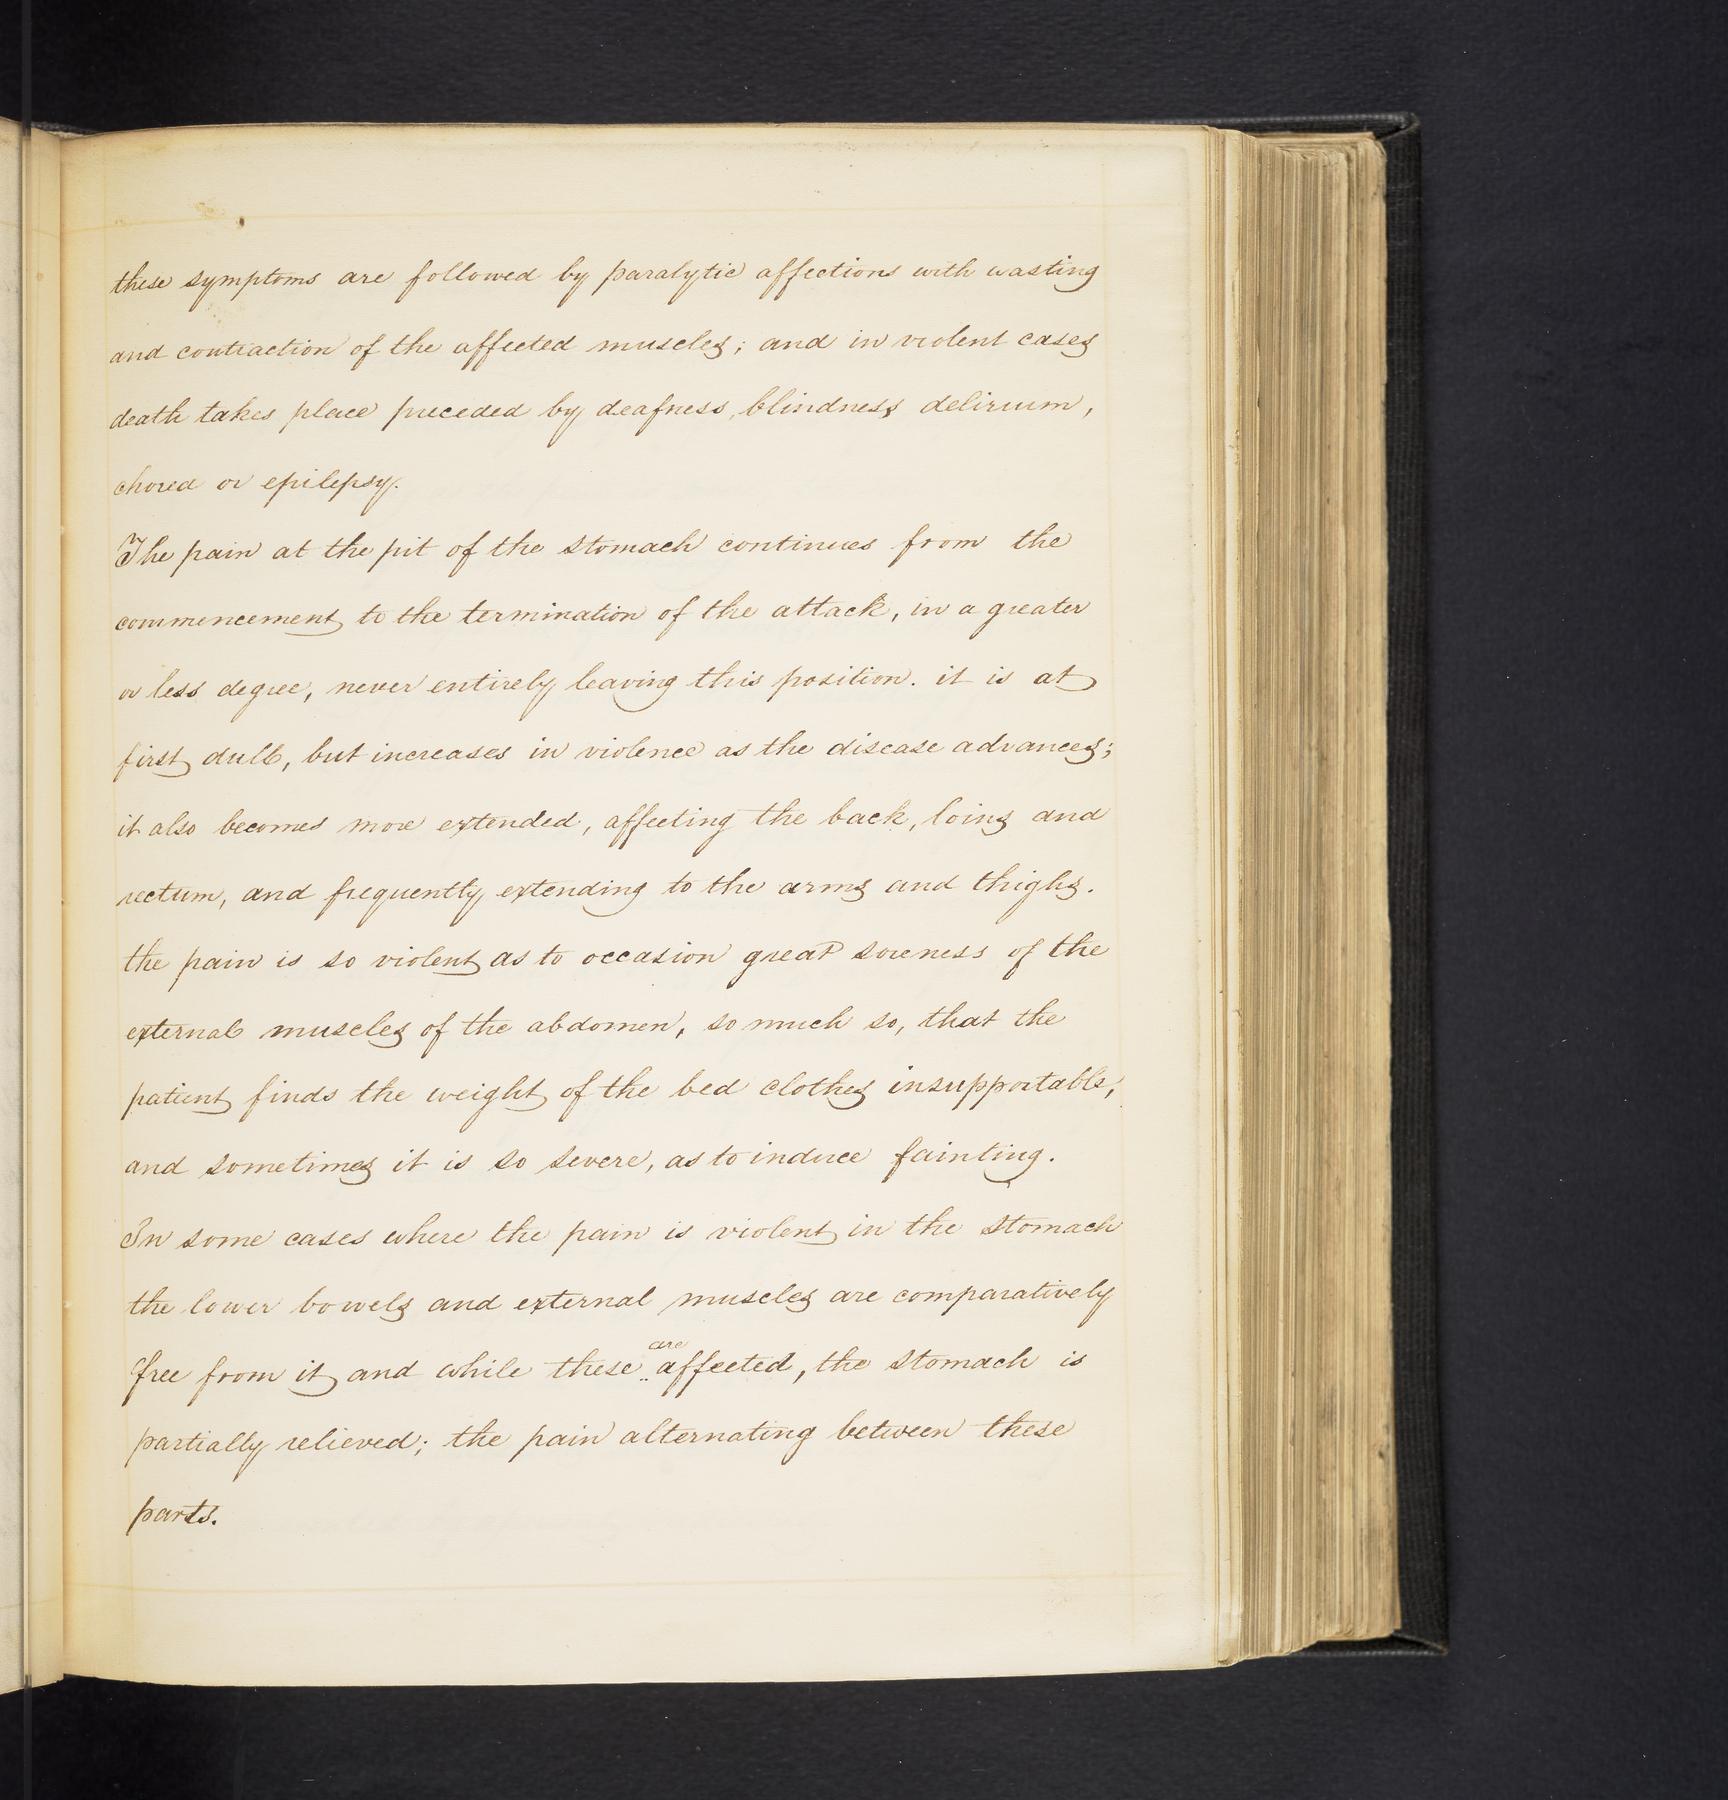 these symptoms are followed by paralytic affections with wasting
and contraction of the affected muscles; and in violent cases
death takes place preceded by deafness, blindness delirium,
chorea or epilepsy.
The pain at the pit of the stomach continues from the
commencement to the termination of the attack, in a greater
or less degree, never entirely leaving this position. it is at
first dull, but increases in violence as the disease advances;
it also becomes more extended, affecting the back, loins and
rectum, and frequently extending to the arms and thighs.
the pain is so violent as to occasion great soreness of the
external muscles of the abdomen, so much so, that the
patient finds the weight of the bed clothes insupportable,
and sometimes it is so severe, as to induce fainting.
In some cases where the pain is violent in the stomach
the lower bowels and external muscles are comparatively
free from it and while these are affected, the stomach is
partially relieved; the pain alternating between these
parts.